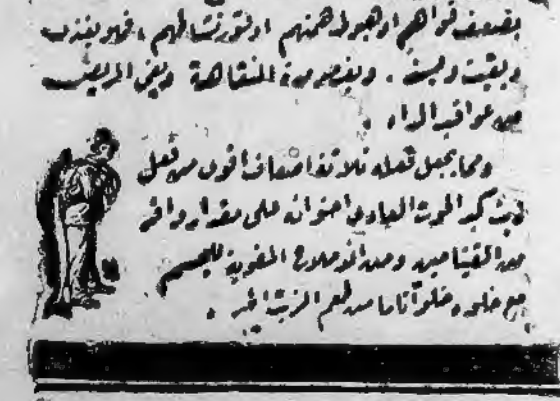 بضعف قواهم او هبوط همتهم او فتور نشاطهم . فهو يغذي
ويقيت ويثبت . ويقصر مدة النقاهة ويقي المريض
من عواقب الداء .
ومما يجعل فعله ثلاثة اضعاف اقوى من فعل
زيت كبد الحوت العادي احتوائه على مقدار وافر
من الفيتامين ومن الاملاح المقوية للجسم
مع خلوه خلوًا تاما من طعم الزيت المر .